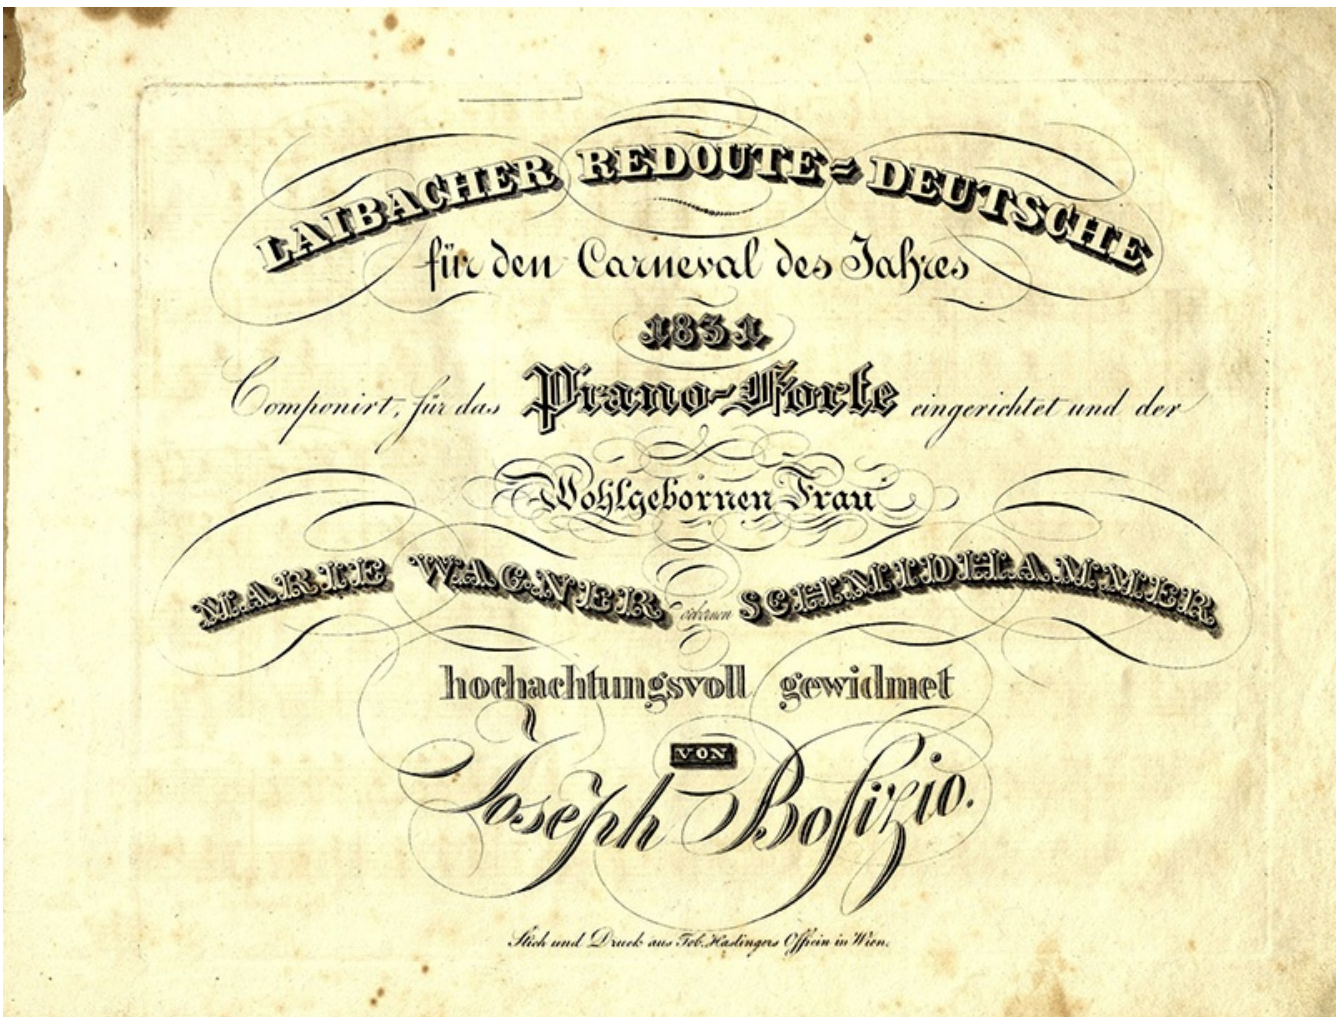 LAIBACHER REDOUTE=DEUTSCHE
für den Carneval des Jahres
1831
Componirt, für das Piano-Forte eingerichtet und der
Wohlgebornen Frau
MARIE WAGNER gebornen SCHMIDHAMMER
hochachtungsvoll gewidmet
VON
Joseph Bosizio.
Stich und Druck aus Tob. Haslingers Officin in Wien.